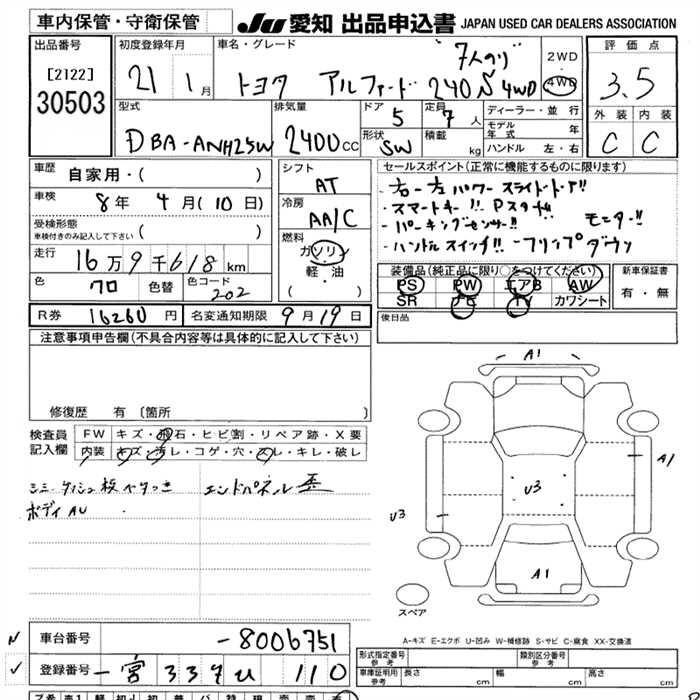 車内保管・守衛保管
JU 愛知 出品申込書 JAPAN USED CAR DEALERS ASSOCIATION
出品番号
[2122]
30503
初度登録年月
21 1月
車名・グレード
7人のり
トヨタ アルファード 240S 4WD
2WD
4WD
評価点
3.5
外装 内装
C C
型式
DBA-ANH25W
排気量
2400cc
ドア
5
定員
7人
形状
SW
積載
kg
ディーラー・並行
モデル年式 年
ハンドル 左・右
車歴
自家用・( )
車検
8年 4月(10日)
受検形態
車検付きのみ記入して下さい ( )
走行
16万9千618km
色
クロ
色替
色コード
202
シフト
AT
冷房
AA/C
燃料
ガソリン
・
軽・油
( )
セールスポイント(正常に機能するものに限ります)
・右・左パワースライドドア!!
・スマートキー!! Pスタート!!
・パーキングセンサー!! モニター!!
・ハンドルスイッチ!! フリップダウン
装備品(純正品に限り○をつけてください)
PS PW エアB AW
SR ナビ TV カワシート
新車保証書
有・無
R券 16260円
名変通知期限 9月19日
後日品
注意事項申告欄(不具合内容等は具体的に記入して下さい)
修復歴 有 〔箇所 〕
検査員記入欄
FW キズ・飛石・ヒビ割・リペア跡・X要
内装 キズ・汚レ・コゲ・穴・スレ・キレ・破レ
エンドパネル歪
ボディAU
A1
A1
U3
U3
A1
スペア
A-キズ E-エクボ U-凹み W-補修跡 S-サビ C-腐食 XX-交換済
車台番号 -8006751
登録番号
110
形式指定番号 参考
類別区分番号 参考
車庫証明用 参考
長さ cm
幅 cm
高さ cm